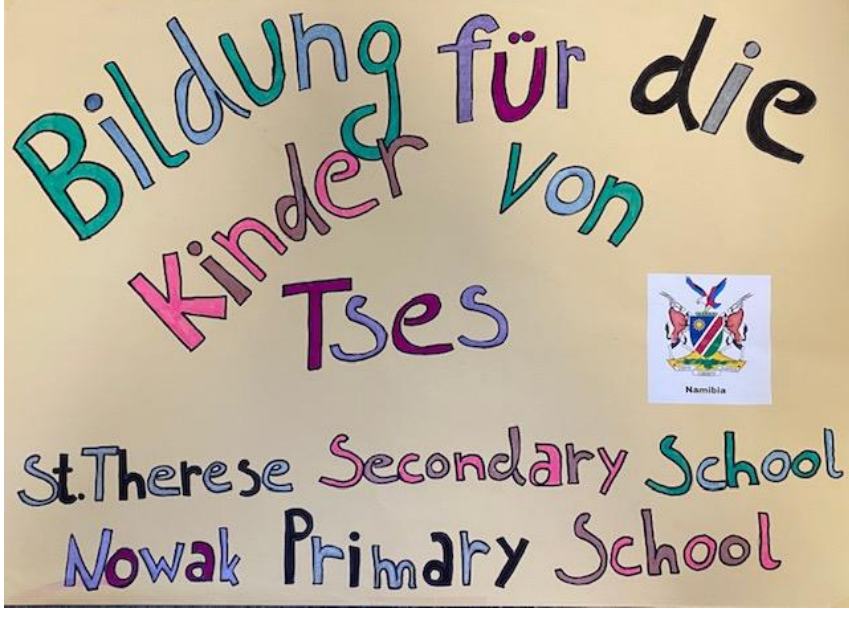 Bildung für die
Kinder von
Tses
Namibia
St. Therese Secondary School
Nowak Primary School